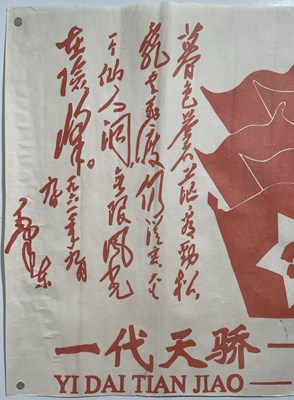 暮色蒼茫看勁松，
亂雲飛渡仍從容。天生
一个仙人洞，無限風光
在險峰。
一九六一年九月
毛澤東
一代天骄
YI DAI TIAN JIAO